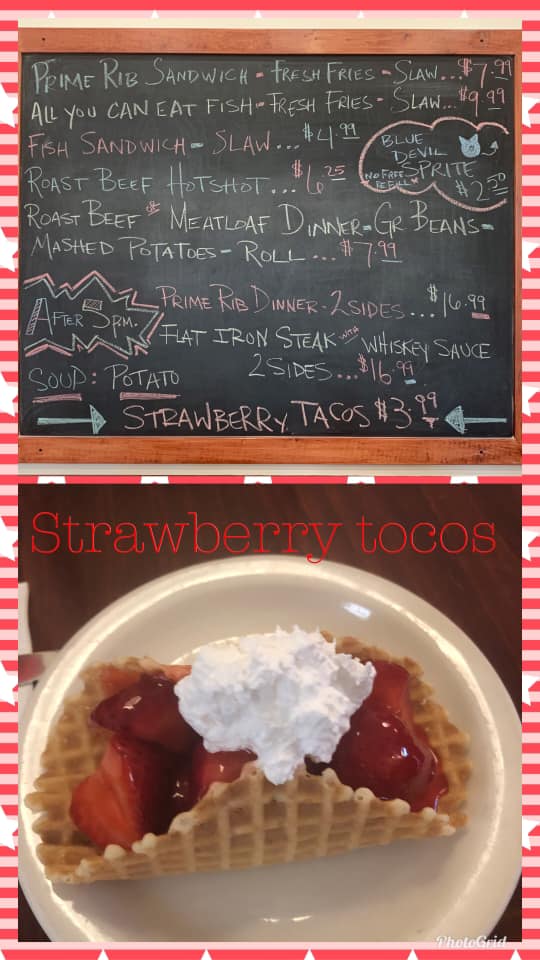 PRIME RIB SANDWICH - FRESH FRIES - SLAW... $7.99
ALL YOU CAN EAT FISH - FRESH FRIES - SLAW... $9.99
FISH SANDWICH - SLAW... $4.99
BLUE
DEVIL
SPRITE
NO FREE
REFILL
$2.50
ROAST BEEF HOTSHOT... $6.25
ROAST BEEF or MEATLOAF DINNER - GR BEANS -
MASHED POTATOES - ROLL... $7.99
AFTER 5 PM.
PRIME RIB DINNER - 2 SIDES... $16.99
FLAT IRON STEAK WITH WHISKEY SAUCE
2 SIDES... $16.99
SOUP: POTATO
STRAWBERRY TACOS $3.99
Strawberry tocos
PhotoGrid